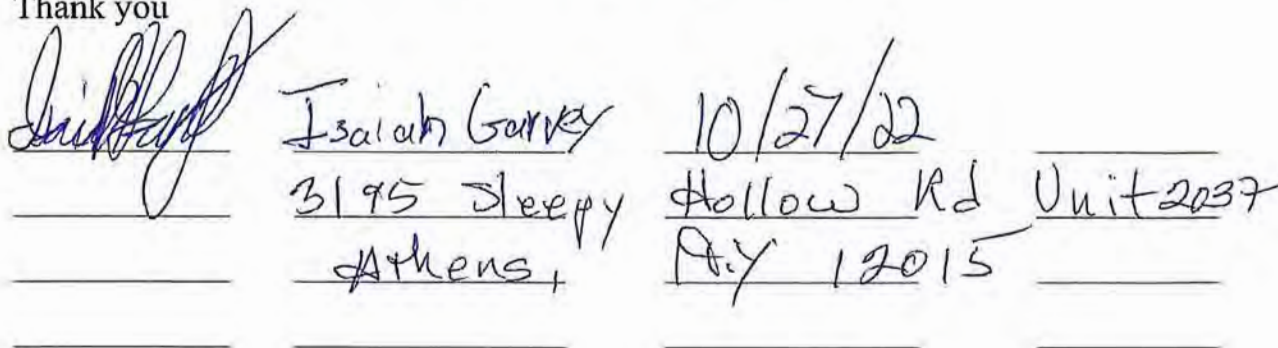 Thank you
Isaiah Garvey 10/27/22
3195 Sleepy Hollow Rd Unit 2037
Athens, N.Y 12015